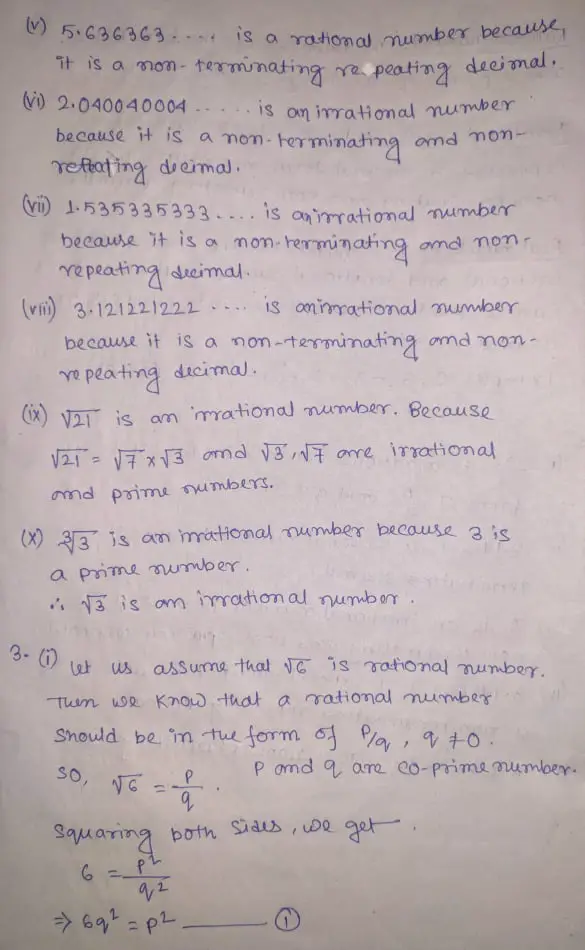 (v) 5.636363.... is a rational number because,
it is a non-terminating repeating decimal.
(vi) 2.040040004...... is an irrational number
because it is a non-terminating and non-
repeating decimal.
(vii) 1.535335333.... is an irrational number
because it is a non-terminating and non-
repeating decimal.
(viii) 3.121221222.... is an irrational number
because it is a non-terminating and non-
repeating decimal.
(ix) √21 is an irrational number. Because
√21 = √7 x √3 and √3, √7 are irrational
and prime numbers.
(x) ∛3 is an irrational number because 3 is
a prime number.
∴ √3 is an irrational number.
3. (i) let us assume that √6 is rational number.
Then we know that a rational number
should be in the form of P/q, q ≠ 0.
So, √6 = p/q. P and q are co-prime number.
Squaring both sides, we get.
6 = p²/q²
⇒ 6q² = p² ——— ①